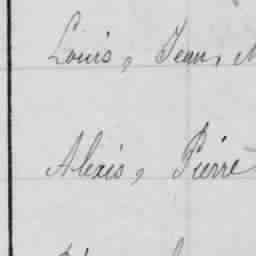 Louis, Jean,
Alexis, Pierre